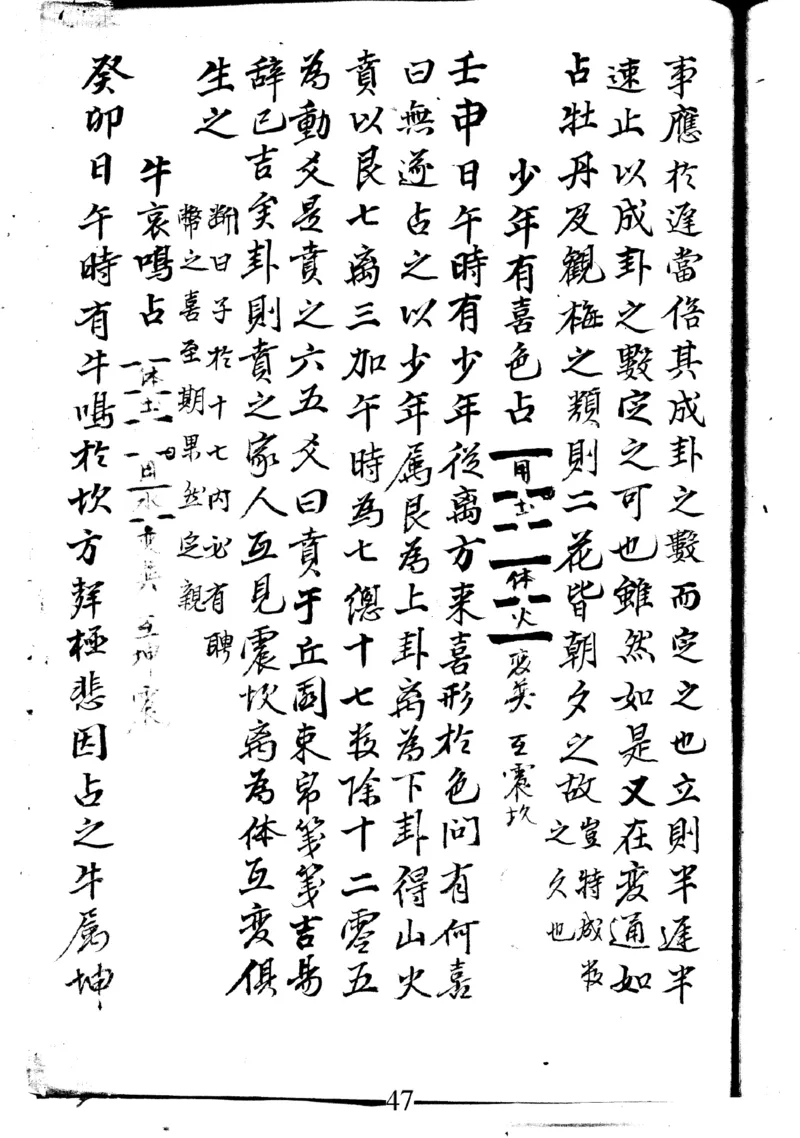 事應於遲當倍其成卦之數而定之也立則半遲半
速止以成卦之數定之可也雖然如是又在変通如
占牡丹及觀梅之類則二花皆朝夕之故豈特成数
之久也
少年有喜色占
用土
体火
变巽 互震坎
壬申日午時有少年從离方来喜形於色問有何嘉
曰無遂占之以少年属艮為上卦离為下卦得山火
賁以艮七离三加午時為七總十七数除十二零五
為動爻是賁之六五爻曰賁于丘園束帛箋箋吉易
辞已吉矣卦則賁之家人互見震坎离為体互变俱
生之
断曰子於十七内必有聘
幣之喜至期果然定親
牛哀鳴占
体土
用水
互坤震
癸卯日午時有牛鳴於坎方聲極悲因占之牛属坤
47